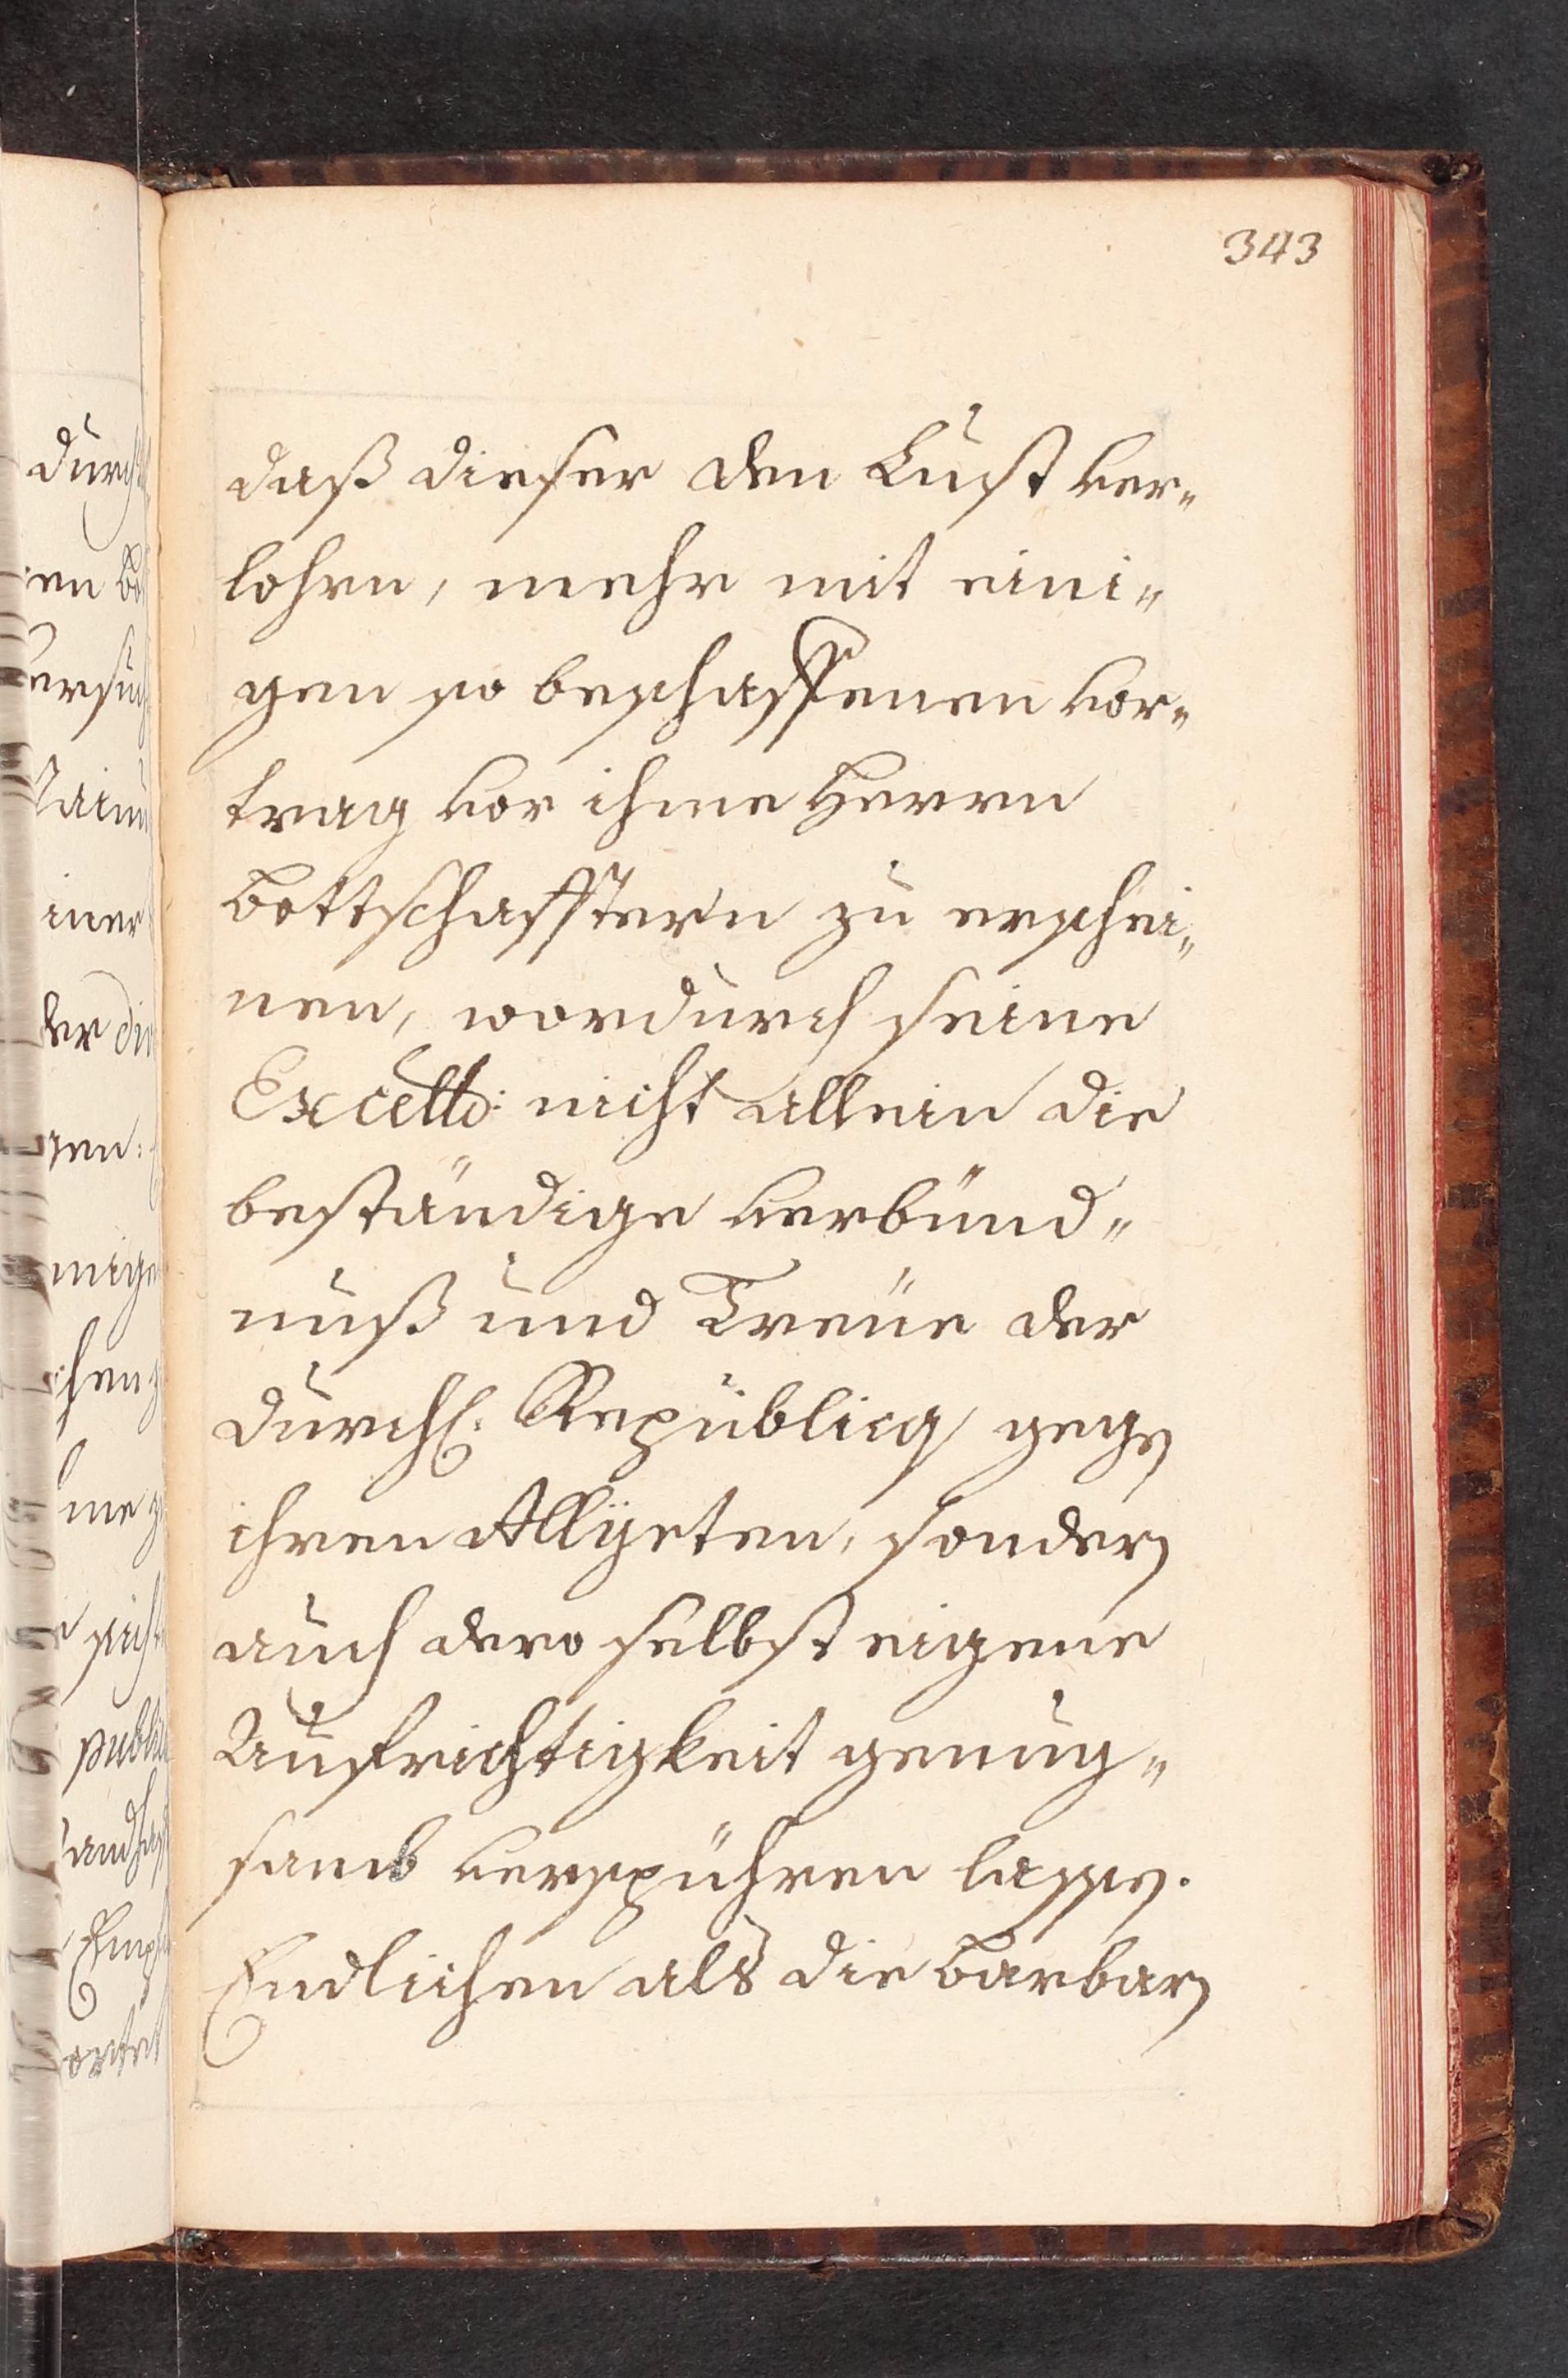 343
daß dieser den Lust ver„
lohren, mehr mit eini„
gen so beschaffenen vor„
trag vor ihme Herrn
Bottschafftern zu erschei„
nen, wordurch seine
Excello: nicht allein die
beständige verbünd„
nuß und Treüe der
Durchl: Republicq gegen
ihren Allÿrten, sondern
auch dero selbst eigene
Aufrichtigkeit genug„
samb verspühren lassen.
Endlichen als die Barbarn